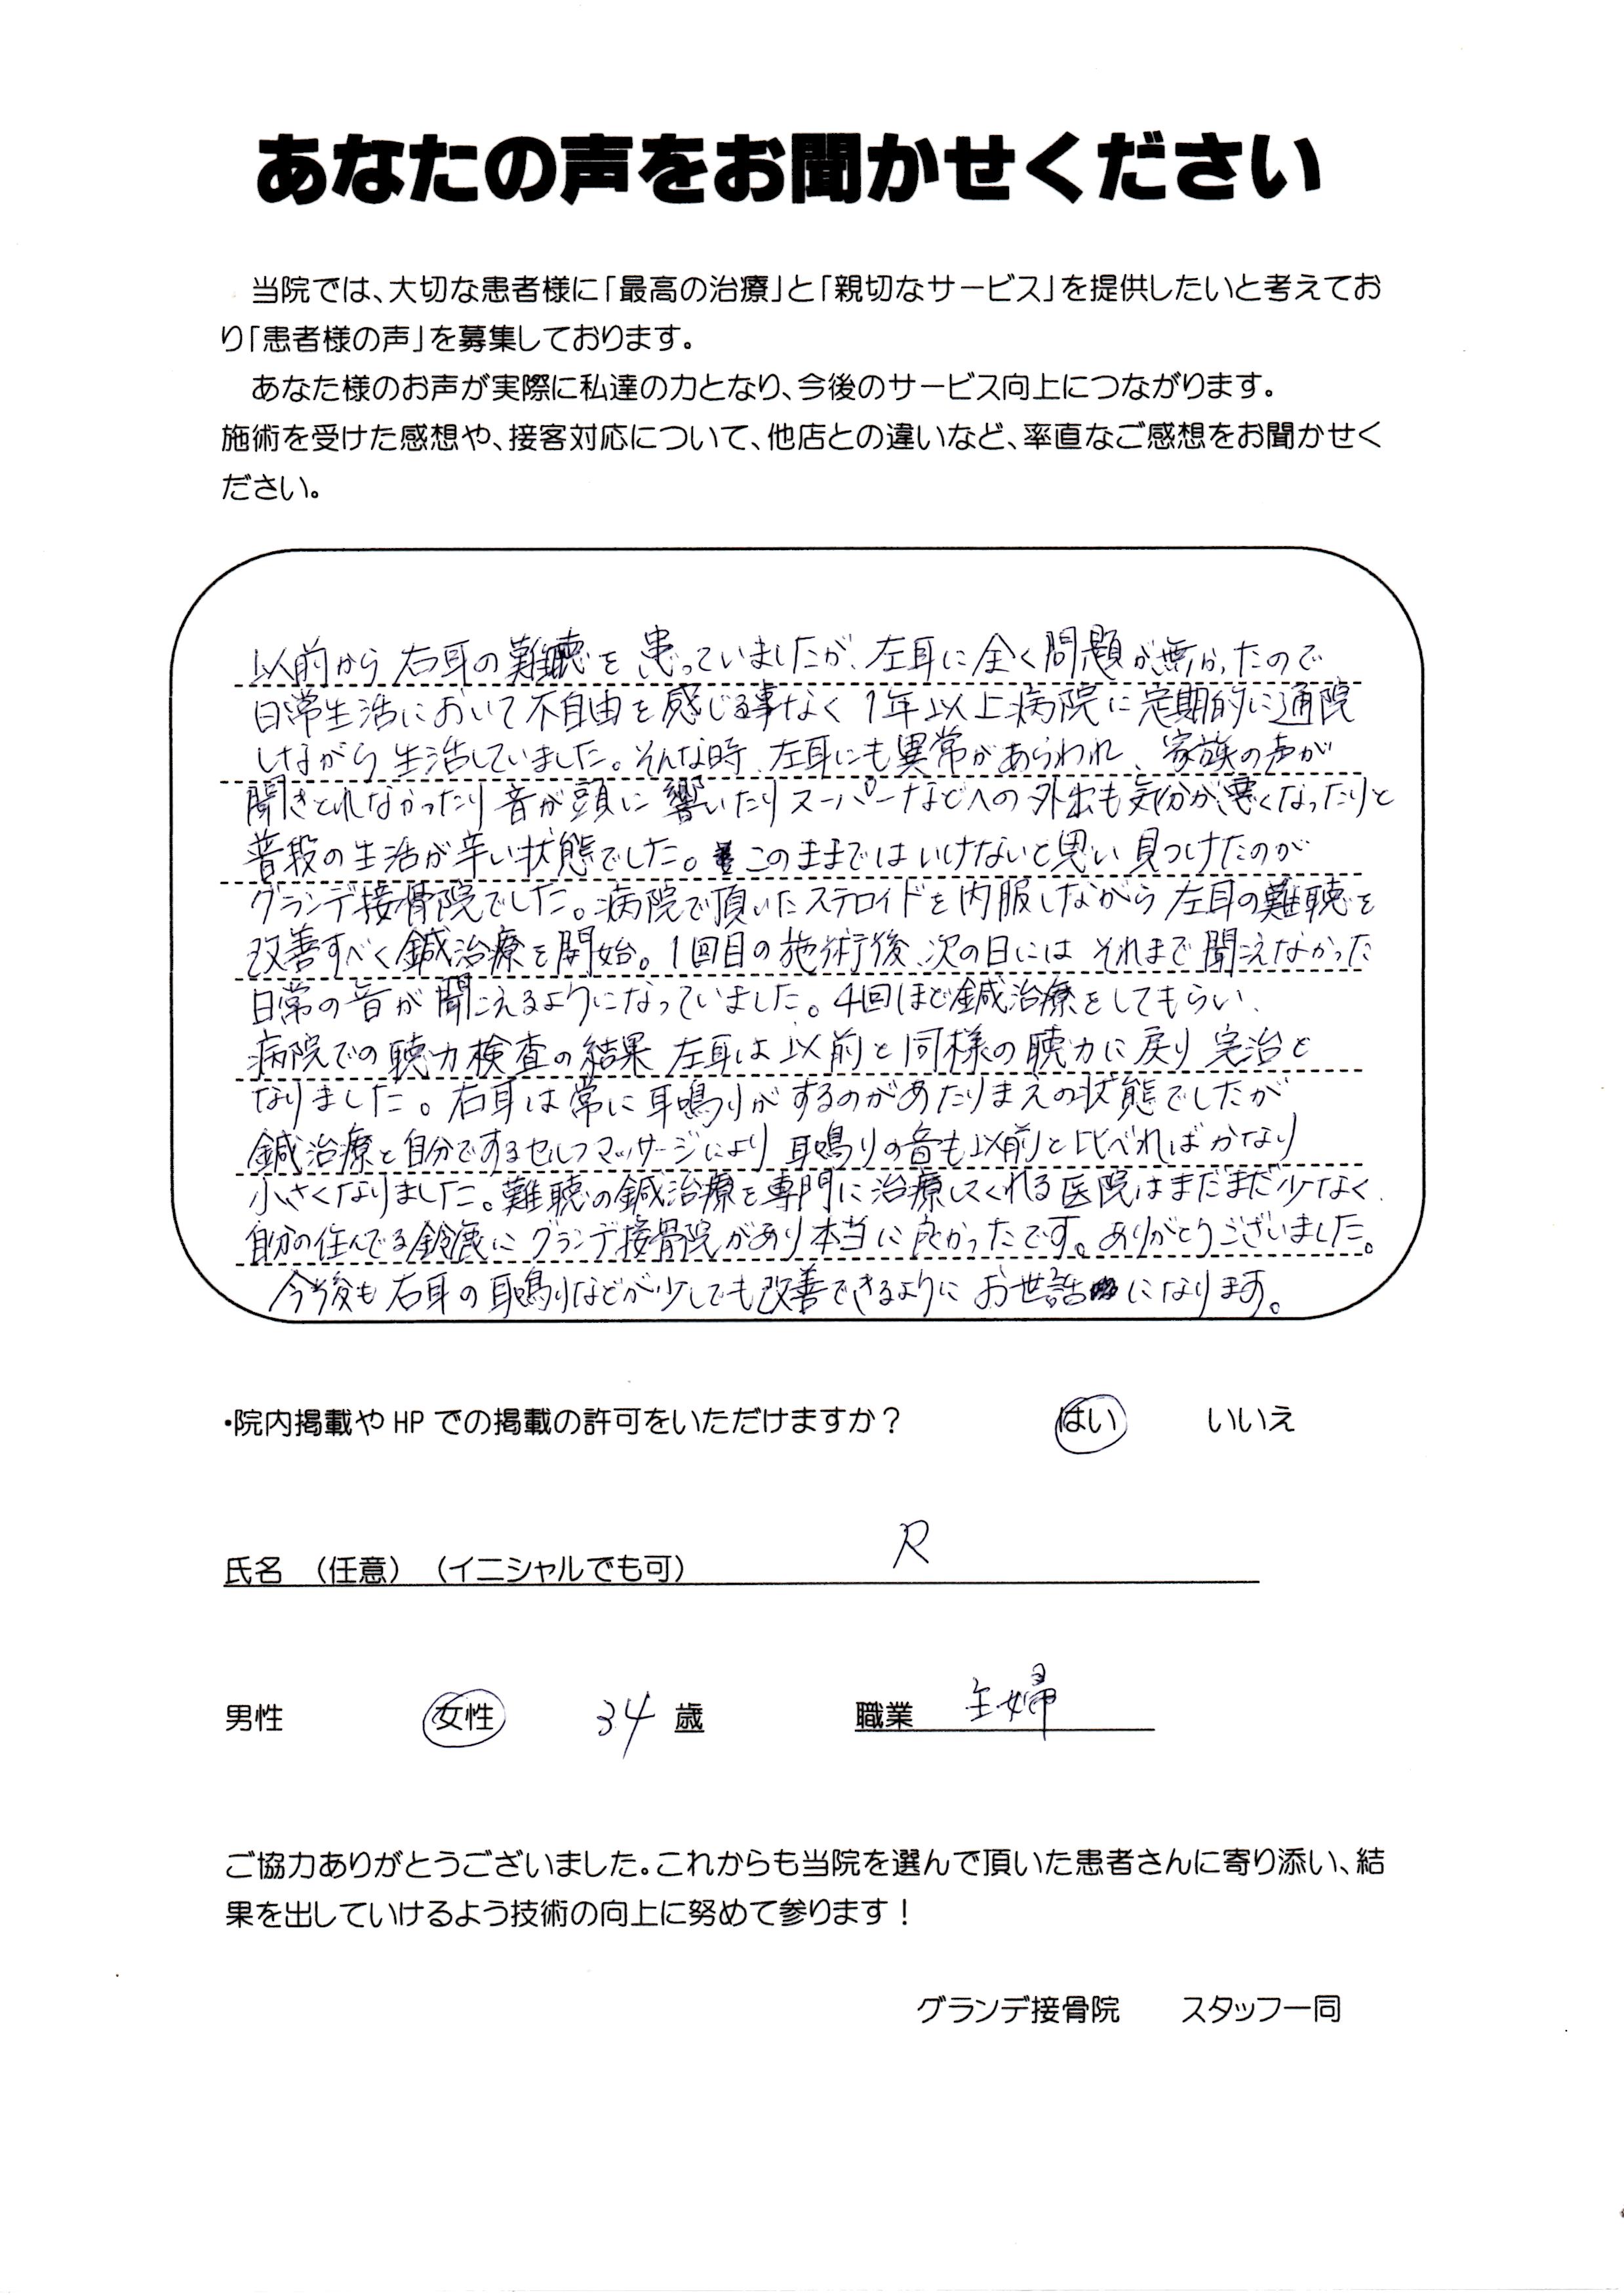 あなたの声をお聞かせください
当院では、大切な患者様に「最高の治療」と「親切なサービス」を提供したいと考えてお
り「患者様の声」を募集しております。
あなた様のお声が実際に私達の力となり、今後のサービス向上につながります。
施術を受けた感想や、接客対応について、他店との違いなど、率直なご感想をお聞かせく
ださい。
以前から右耳の難聴を患っていましたが、左耳に全く問題が無かったので
日常生活において不自由を感じる事なく1年以上病院に定期的に通院
しながら生活していました。そんな時、左耳にも異常があらわれ、家族の声が
聞きとれなかったり音が頭に響いたりスーパーなどへの外出も気分が悪くなったりと
普段の生活が辛い状態でした。このままではいけないと思い見つけたのが
グランデ接骨院でした。病院で頂いたステロイドを内服しながら左耳の難聴を
改善すべく鍼治療を開始。1回目の施術後、次の日にはそれまで聞こえなかった
日常の音が聞こえるようになっていました。4回ほど鍼治療をしてもらい、
病院での聴力検査の結果左耳は以前と同様の聴力に戻り完治と
なりました。右耳は常に耳鳴りがするのがあたりまえの状態でしたが
鍼治療と自分でするセルフマッサージにより耳鳴りの音も以前と比べればかなり
小さくなりました。難聴の鍼治療を専門に治療してくれる医院はまだまだ少なく、
自分の住んでる鈴鹿にグランデ接骨院があり本当に良かったです。ありがとうございました。
今後も右耳の耳鳴りなどが少しでも改善できるようにお世話になります。
・院内掲載やHPでの掲載の許可をいただけますか？ はい いいえ
氏名 （任意）（イニシャルでも可） R
男性 女性 34 歳 職業 主婦
ご協力ありがとうございました。これからも当院を選んで頂いた患者さんに寄り添い、結
果を出していけるよう技術の向上に努めて参ります！
グランデ接骨院 スタッフ一同